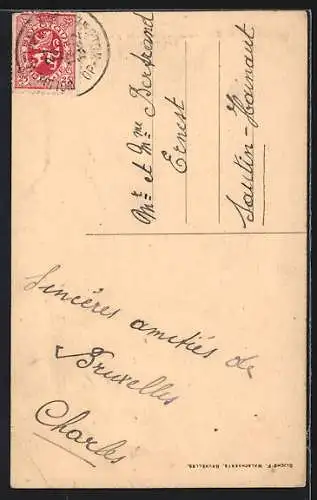 Mr et Mme Bertrand
Ernest
Sautin-Hainaut
Sincères amitiés de
Bruxelles
Charles
CLICHÉ F. WALSCHAERTS, BRUXELLES.